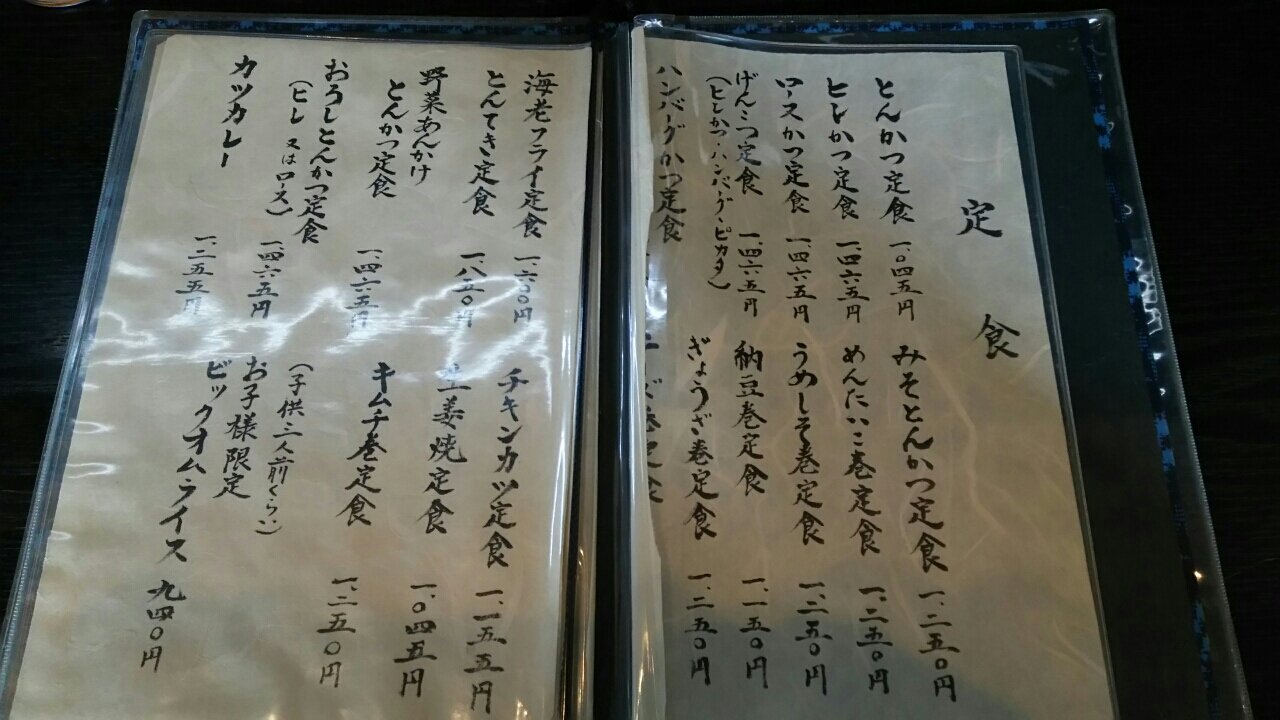 定食
とんかつ定食 一、〇四五円
ヒレかつ定食 一、四六五円
ロースかつ定食 一、四六五円
げんこつ定食 一、四六五円
(ヒレかつ・ハンバーグ・ピカタ)
ハンバーグかつ定食
みそとんかつ定食 一、二五〇円
めんたいこ巻定食 一、二五〇円
うめしそ巻定食 一、二五〇円
納豆巻定食 一、一五〇円
ぎょうざ巻定食 一、二五〇円
海老フライ定食 一、六〇〇円
とんてき定食 一、八五〇円
野菜あんかけ
とんかつ定食 一、四六五円
おろしとんかつ定食 一、四六五円
(ヒレ又はロース)
カツカレー 一、二五五円
チキンカツ定食 一、一五五円
生姜焼定食 一、〇四五円
キムチ巻定食 一、二五〇円
(子供二人前くらい)
お子様限定
ビックオムライス 九四〇円